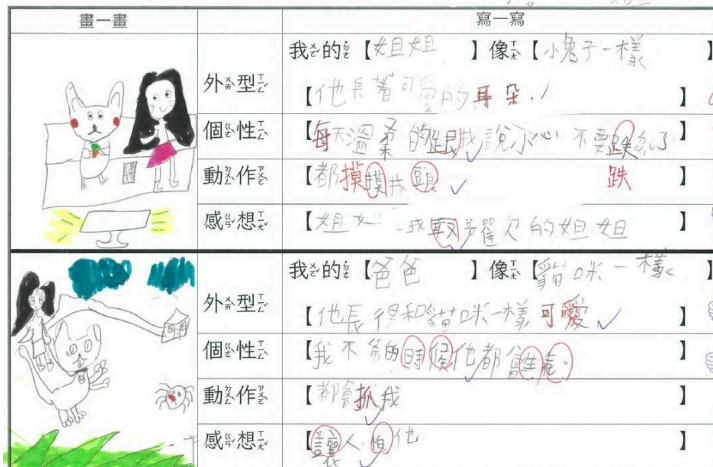 畫一畫 寫一寫
我的【姐姐 】像【小鬼子一樣 】
外型 【他長著可愛的耳朵 】
個性 【每天溫柔的跟我說小心不要跌 了
動作 【都摸摸我頭 】 跌
感想 【姐 我 的姐姐 】
我的【爸爸 】像【貓咪一樣 】
外型 【他長得和貓咪一樣可愛 】
個性 【我不 的時候他都會 】
動作 【都會抓我 】
感想 【讓人怕他 】